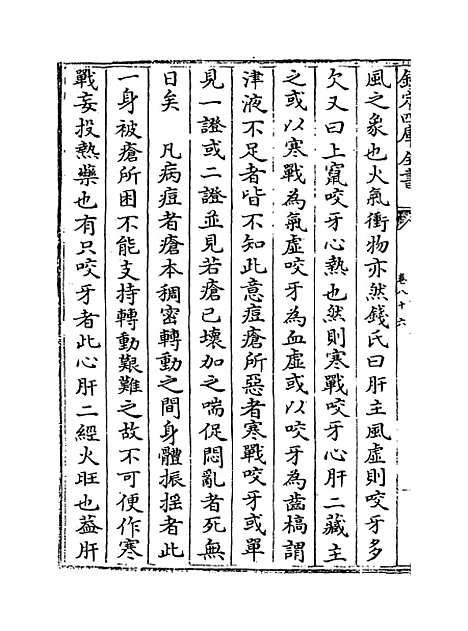 欽定四庫全書
卷八十六
風之象也火氣衝物亦然錢氏曰肝主風虛則咬牙多
欠又曰上竄咬牙心熱也然則寒戰咬牙心肝二藏主
之或以寒戰為氣虛咬牙為血虛或以咬牙為齒槁謂
津液不足者皆不知此意痘瘡所惡者寒戰咬牙或單
見一證或二證並見若瘡已壞加之喘促悶亂者死無
日矣　凡病痘者瘡本稠密轉動之間身體振揺者此
一身被瘡所困不能支持轉動艱難之故不可便作寒
戰妄投熱藥也有只咬牙者此心肝二經火旺也葢肝